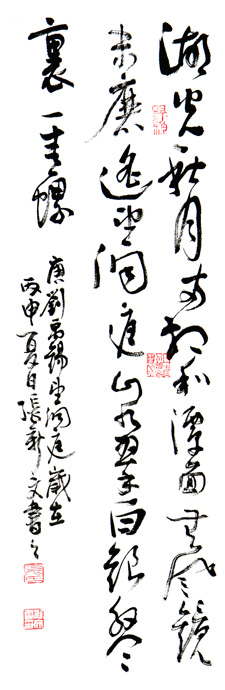 湖光秋月兩相和潭面無風鏡
未磨遙望洞庭山水翠白銀盤
裏一青螺
唐劉禹錫望洞庭歲在
丙申夏日張新文書之